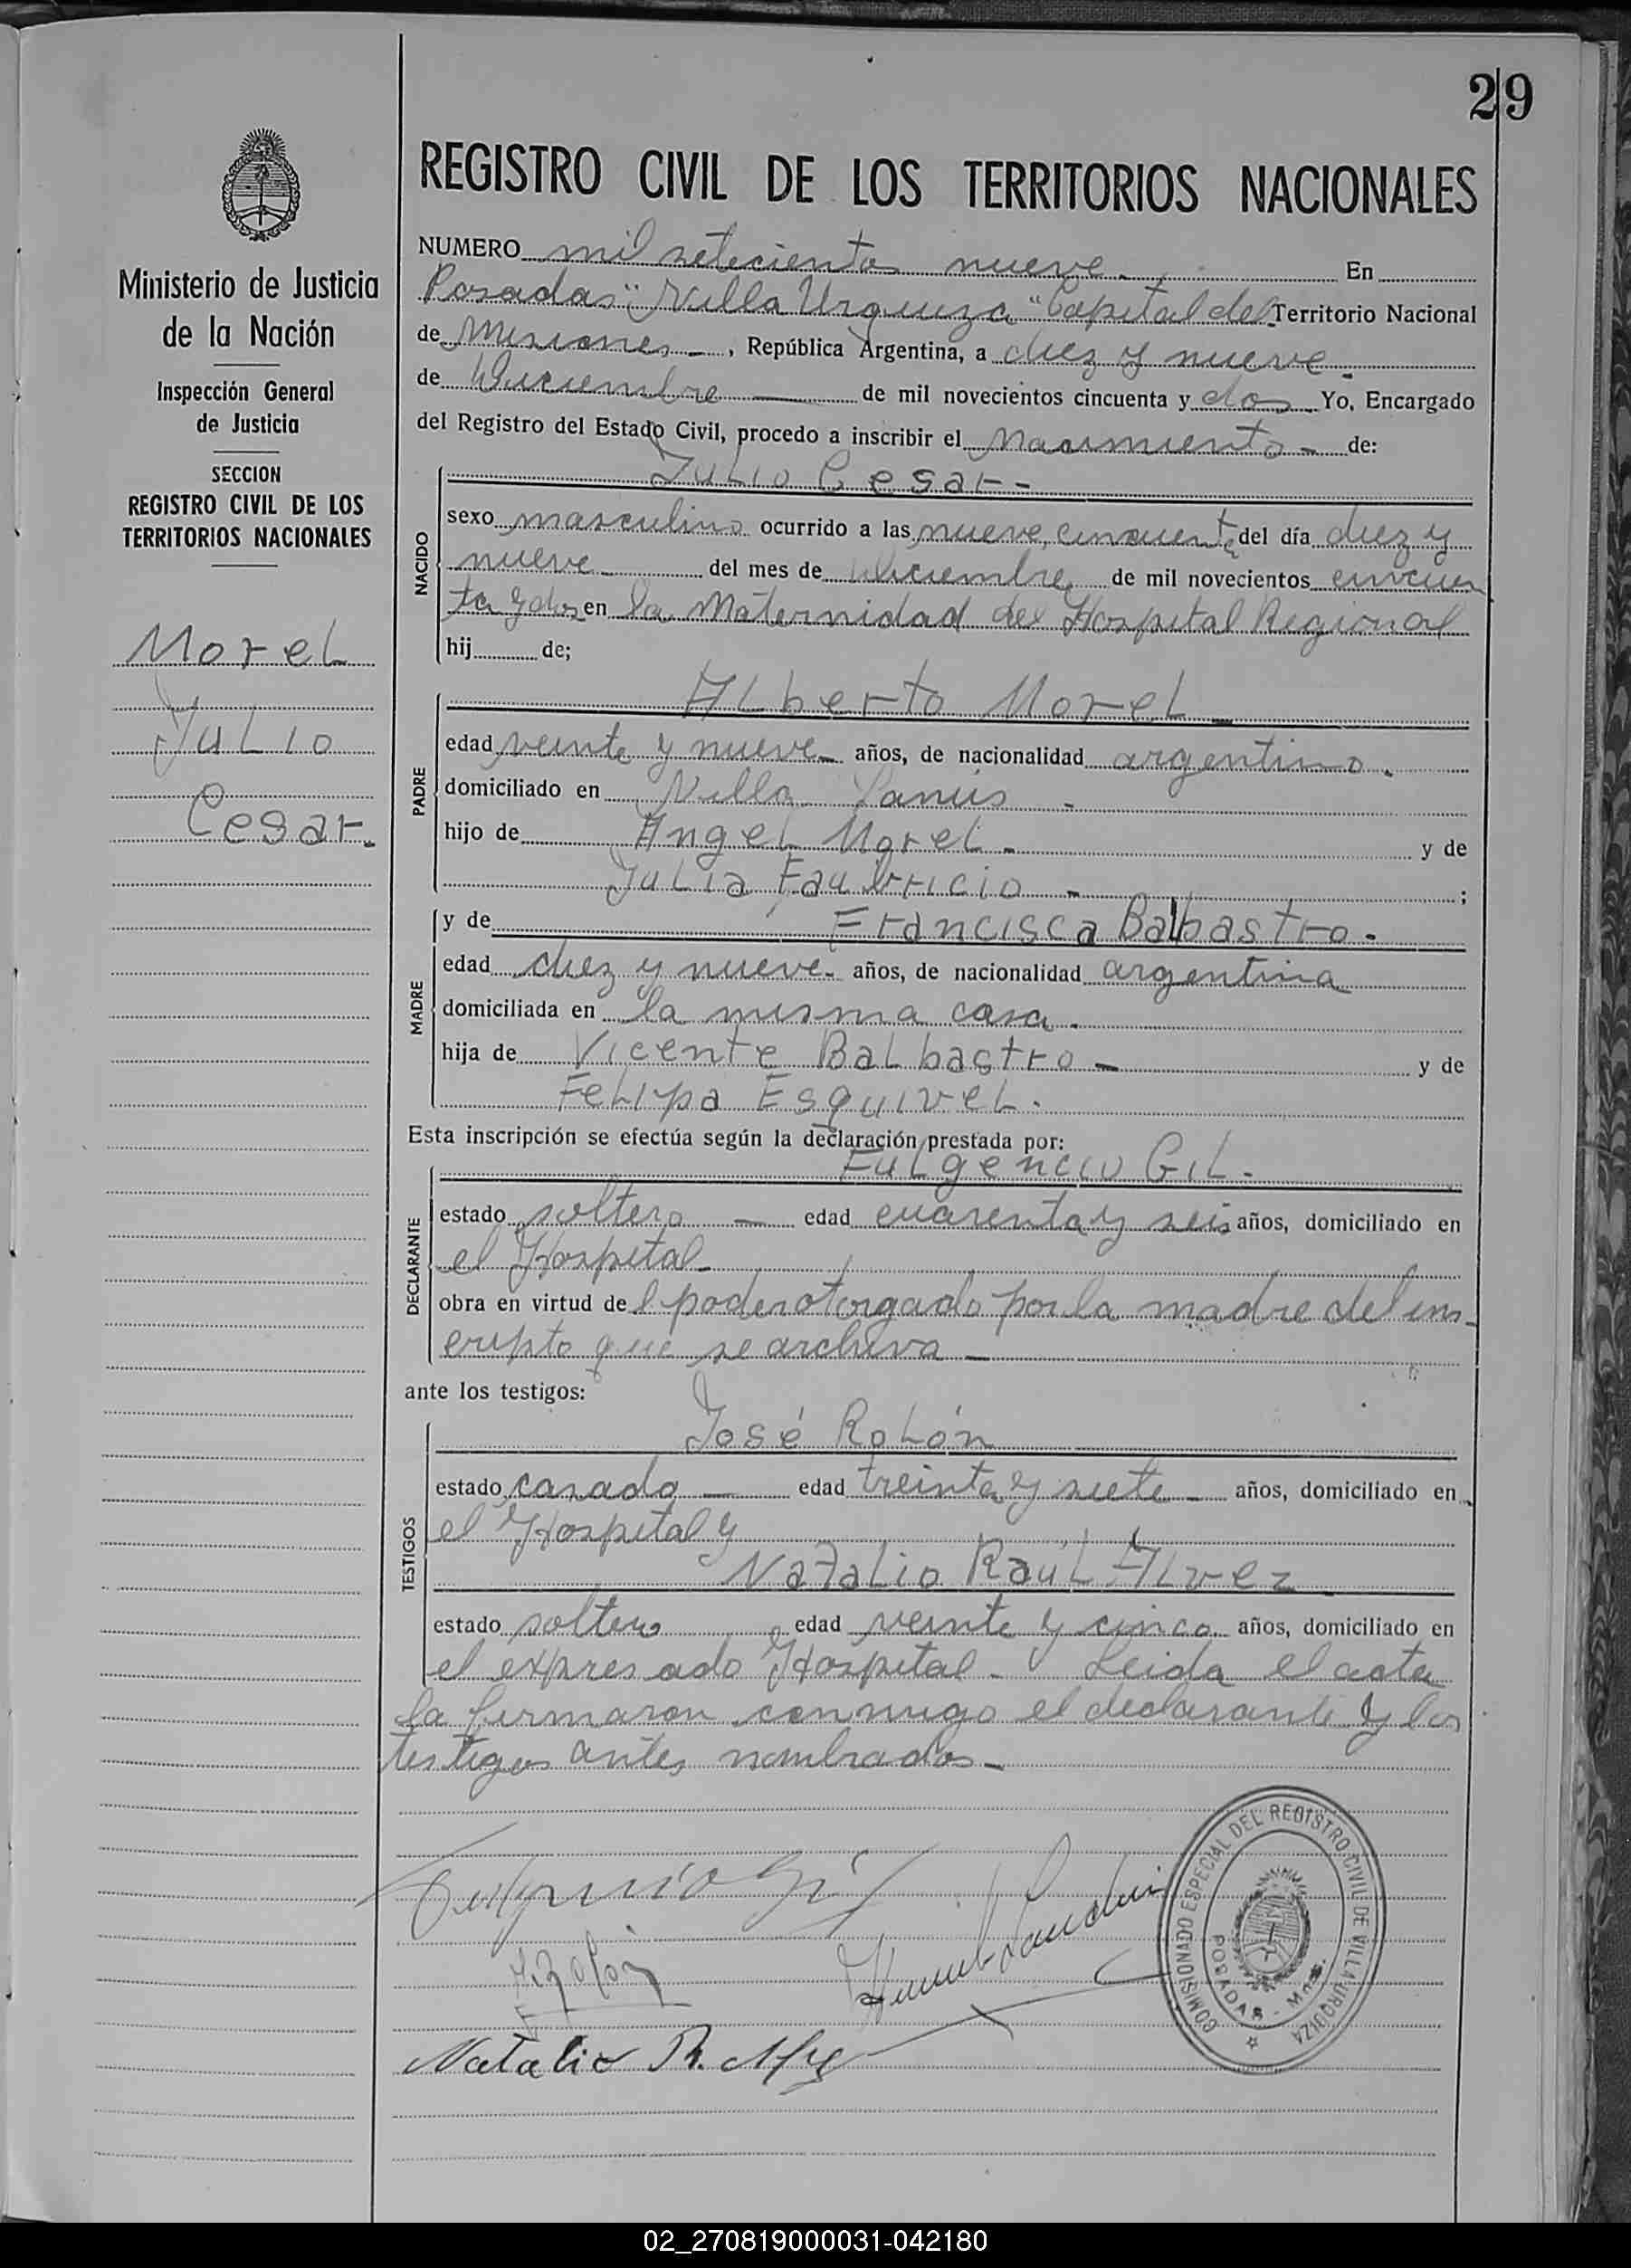 29
Ministerio de Justicia
de la Nación
Inspección General
de Justicia
SECCION
REGISTRO CIVIL DE LOS
TERRITORIOS NACIONALES
Morel
Julio
Cesar.
REGISTRO CIVIL DE LOS TERRITORIOS NACIONALES
NUMERO mil setecientos nueve. En
Posadas "Villa Urquiza" Capital del Territorio Nacional
de Misiones, República Argentina, a diez y nueve.
de Diciembre de mil novecientos cincuenta y dos Yo, Encargado
del Registro del Estado Civil, procedo a inscribir el Nacimiento de:
NACIDO
Julio Cesar-
sexo masculino ocurrido a las nueve, cincuenta del día diez y
nueve del mes de Diciembre de mil novecientos cincuen
ta y dos en la Maternidad del Hospital Regional
hij de;
PADRE
Alberto Morel
edad veinte y nueve años, de nacionalidad argentino.
domiciliado en Villa Lanús -
hijo de Angel Morel - y de
Julia Faubricio - ;
MADRE
y de Francisca Balbastro.
edad diez y nueve- años, de nacionalidad argentina
domiciliada en la misma casa.
hija de Vicente Balbastro - y de
Felipa Esquivel.
Esta inscripción se efectúa según la declaración prestada por:
DECLARANTE
Fulgencio Gil.
estado soltero - edad cuarenta y seis años, domiciliado en
el Hospital-
obra en virtud del poder otorgado por la madre del ins-
cripto que se archiva -
ante los testigos:
TESTIGOS
José Rolón
estado casado - edad treinta y siete - años, domiciliado en
el Hospital y
Natalio Raúl Alvez
estado soltero edad veinte y cinco. años, domiciliado en
el expresado Hospital. Leida el acta
la firmaron conmigo el declarante y los
testigos antes nombrados.-
Fulgencio Gil
J. Rolón
Natalio R.
COMISIONADO ESPECIAL DEL REGISTRO CIVIL DE VILLA URQUIZA
POSADAS - Mnes.
02_270819000031-042180